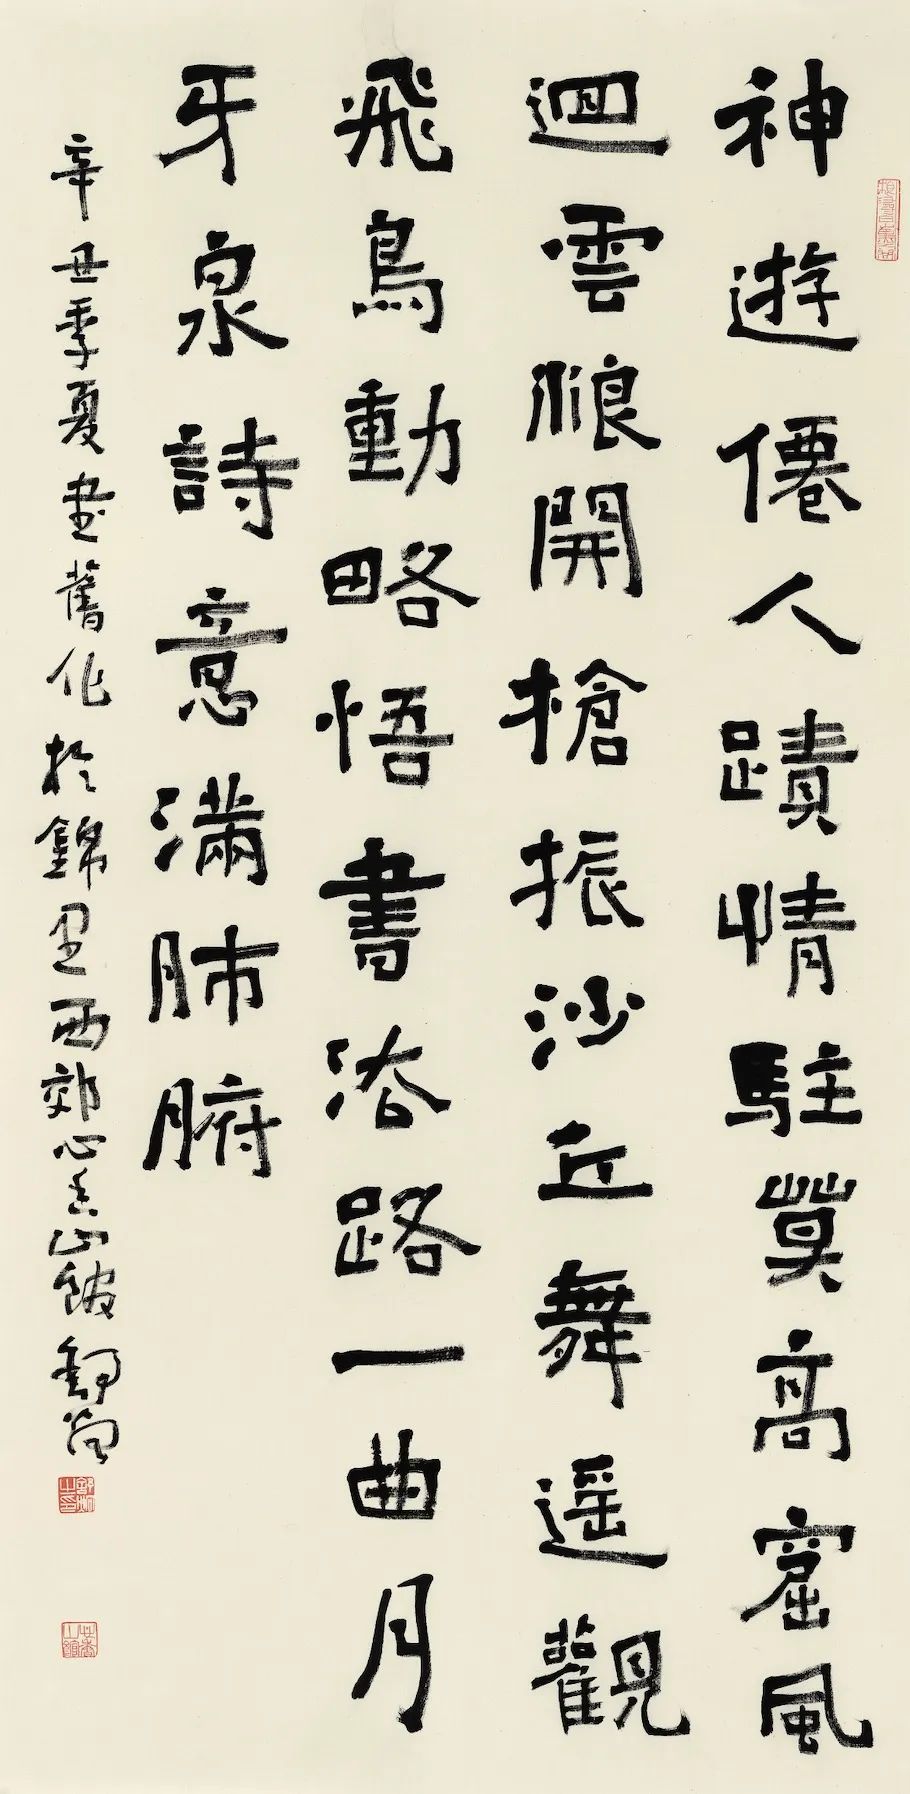 神遊僊人蹟情駐莫高窟風
迴雲浪開搶振沙丘舞遥觀
飛鳥動略悟書法路一曲月
牙泉詩意滿肺腑
辛丑季夏書舊作於錦里西郊心香山館